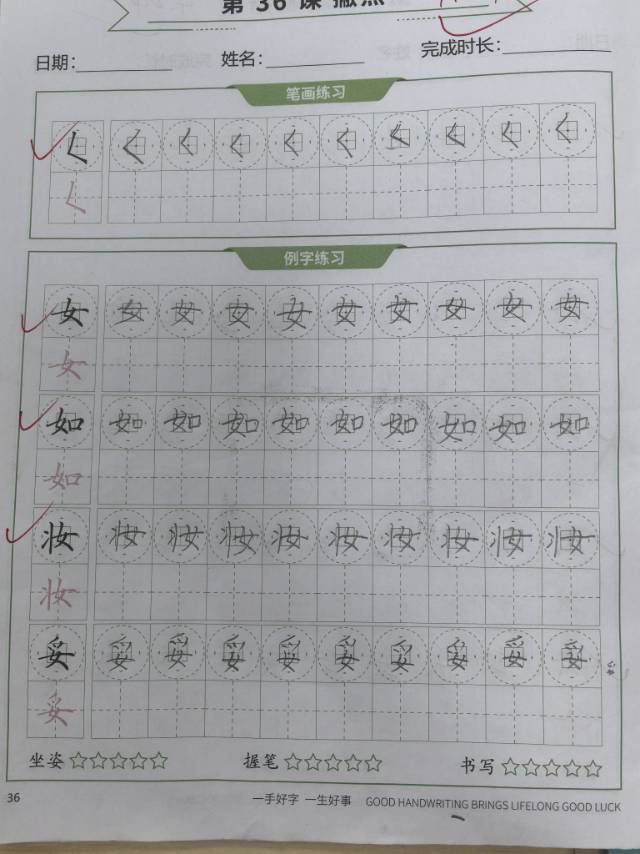 第 36 课 撇点
日期：
姓名：
完成时长：
笔画练习
𡿨 𡿨 𡿨 𡿨 𡿨 𡿨 𡿨 𡿨 𡿨 𡿨
𡿨
例字练习
女 女 女 女 女 女 女 女 女 女
女
如 如 如 如 如 如 如 如 如 如
如
妆 妆 妆 妆 妆 妆 妆 妆 妆 妆
妆
妥 妥 妥 妥 妥 妥 妥 妥 妥 妥
妥
坐姿 ☆☆☆☆☆ 握笔 ☆☆☆☆☆ 书写 ☆☆☆☆☆
36 一手好字 一生好事 GOOD HANDWRITING BRINGS LIFELONG GOOD LUCK